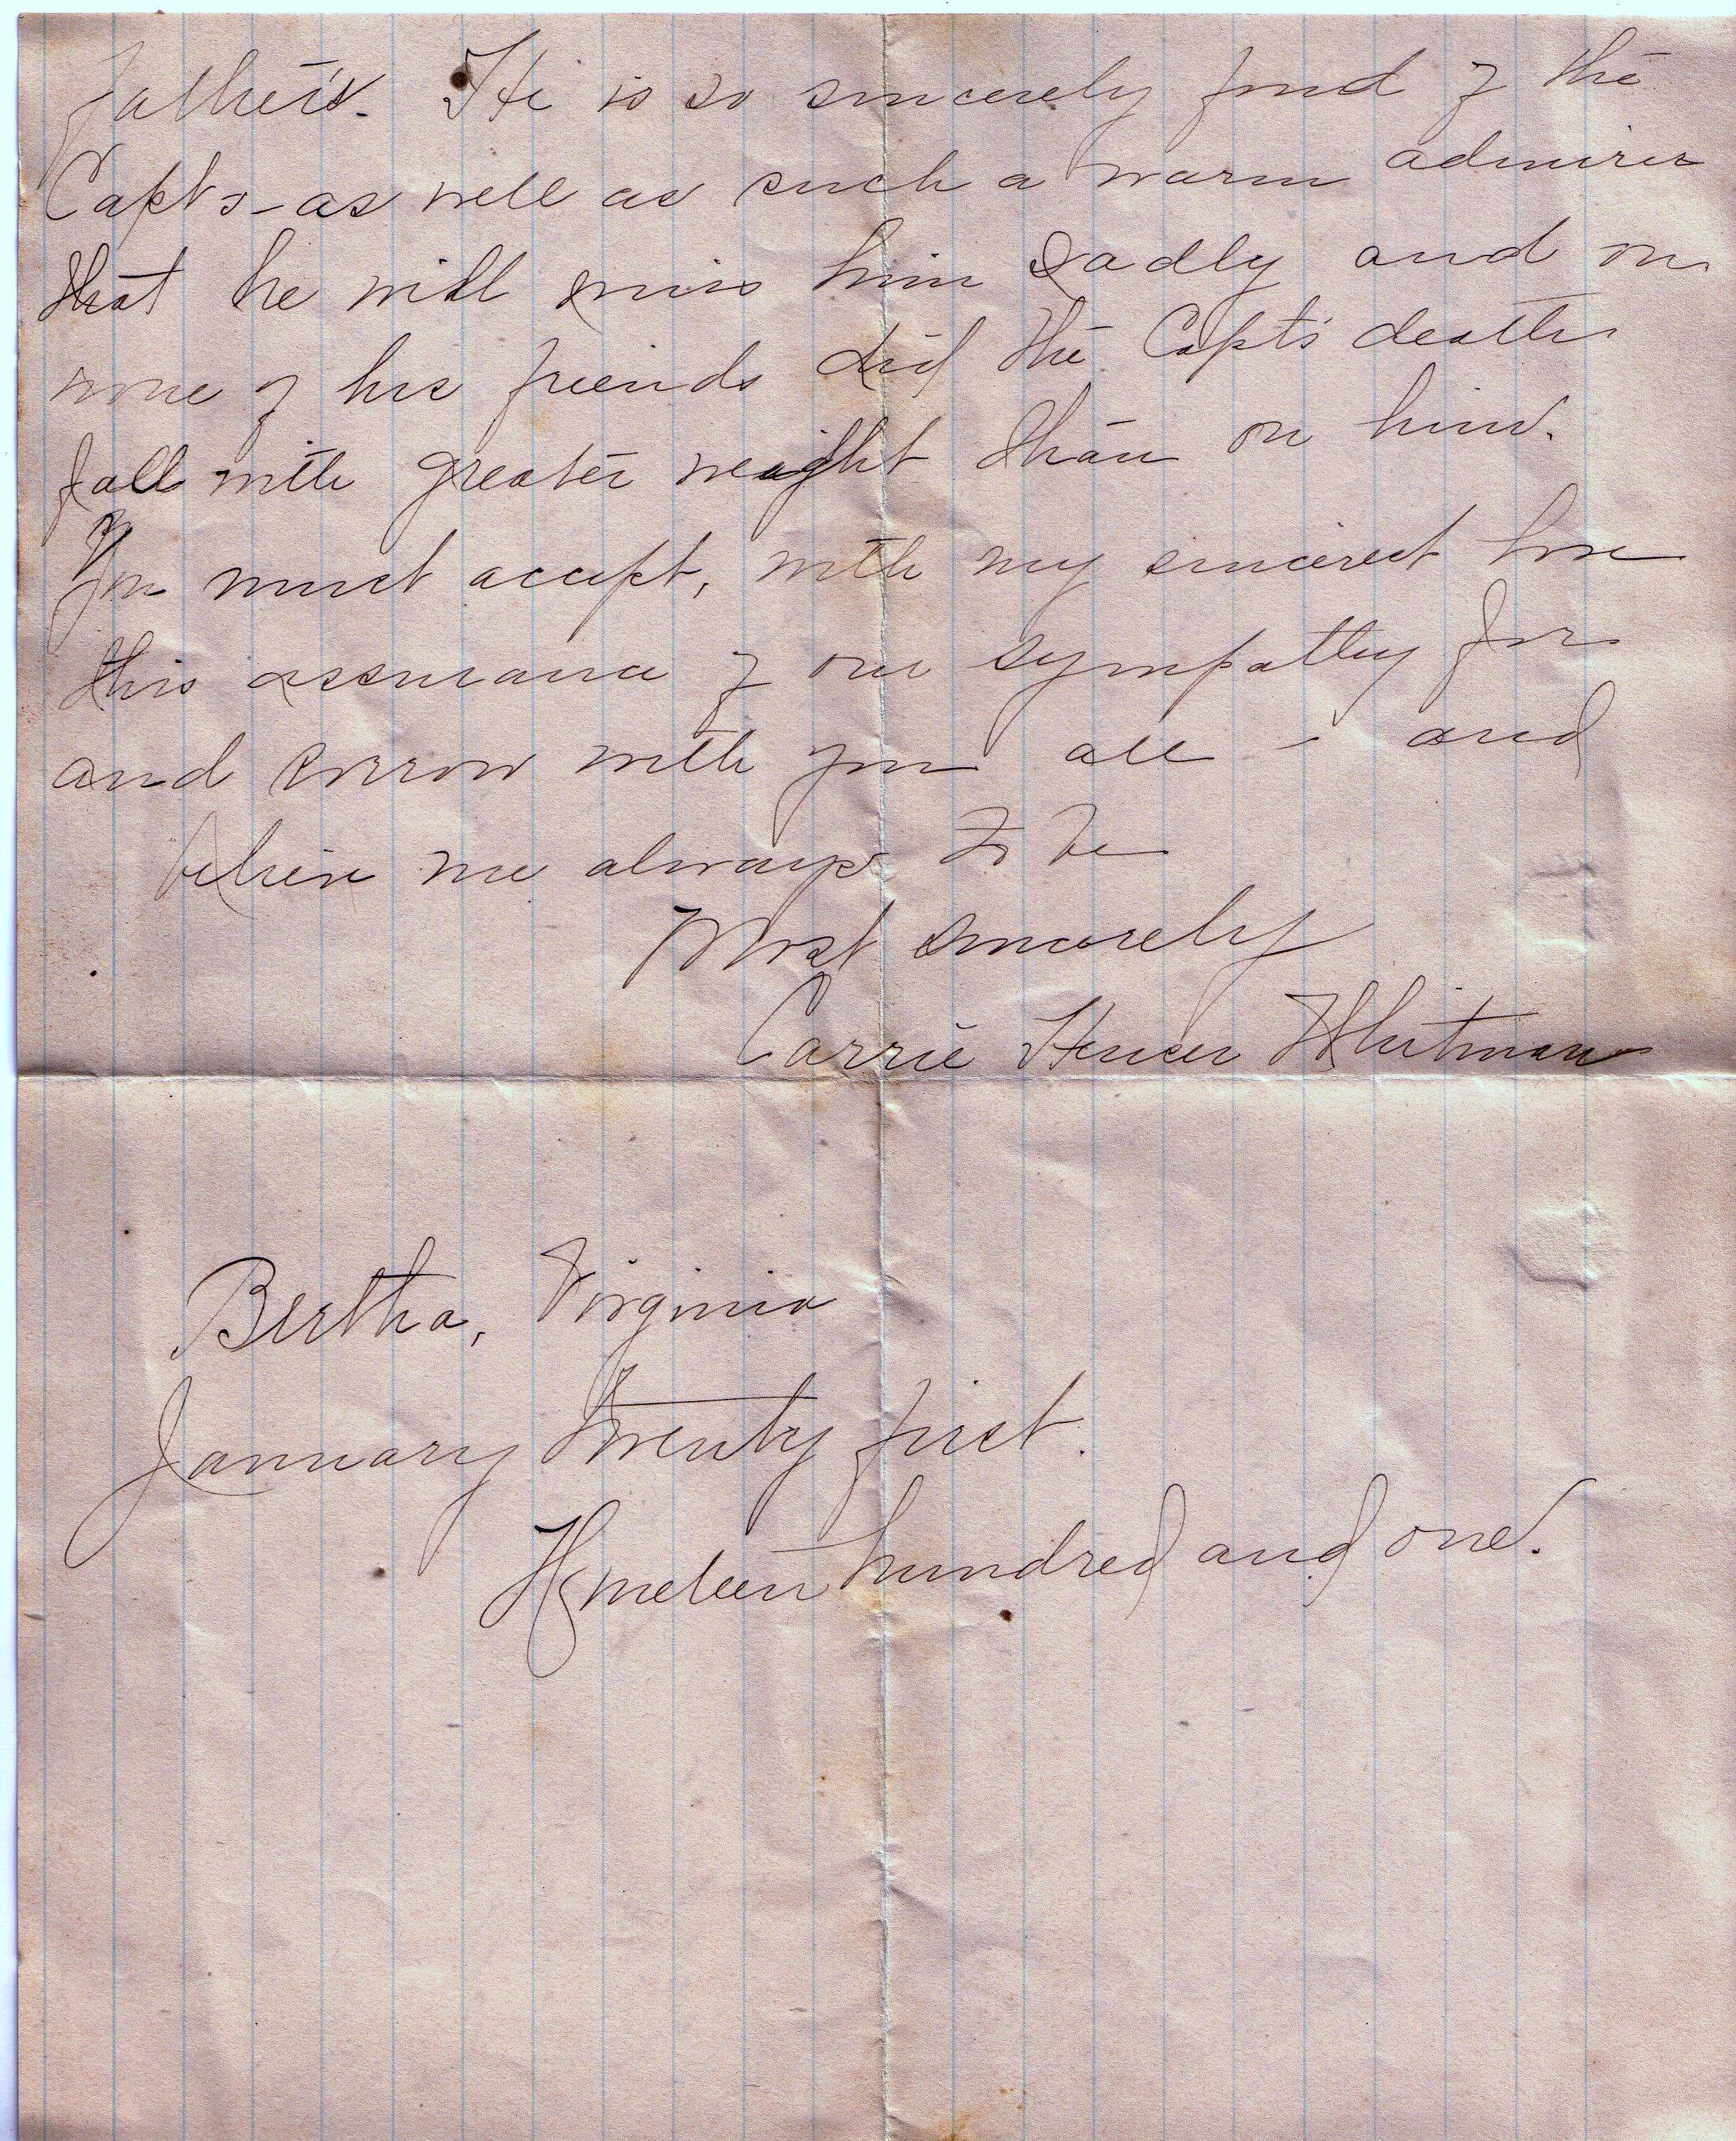 father's. He is so sincerely fond of the
Capt's - as well as such a warm admirer
that he will miss him sadly and on
none of his friends did the Capt's death
fall with greater weight than on him.
You must accept, with my sincerest love
this assurance of our sympathy for
and sorrow with you all - and
believe me always to be
Most sincerely
Carrie Whitman
Bertha, Virginia
January twenty first.
Nineteen hundred and one.